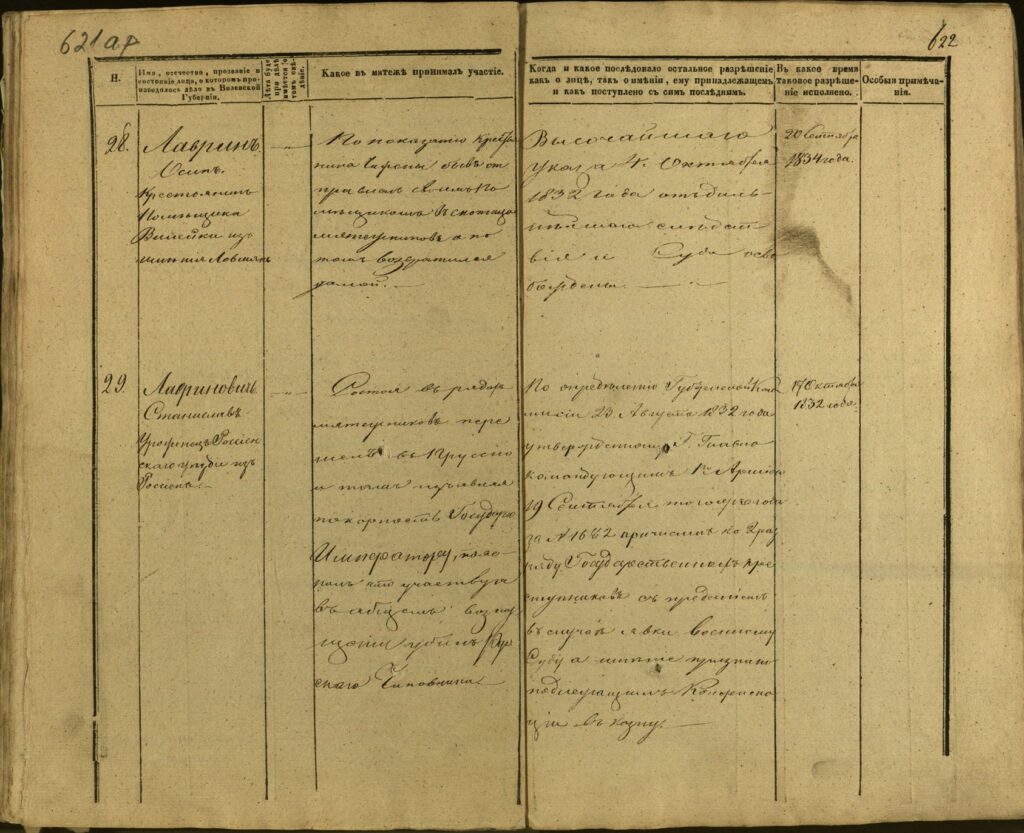 621ар
622
Н.
Имя, отечество, прозваніе и
состояніе лица, о которомъ про-
изводилось дѣло въ Виленской
Губерніи.
Какое въ мятежѣ принималъ участіе.
Когда и какое послѣдовало остальное разрѣшеніе
какъ о лицѣ, такъ о имѣніи, ему принадлежащемъ
и какъ поступлено съ симъ послѣднимъ.
Въ какое время
таковое разрѣше-
ніе исполнено.
Особыя примѣча-
нія.
28.
Лавринъ
Осипъ.
Крестьянинъ
Помѣщика
Вилейки изъ
имѣнія
По показанію Крестья
нина бывъ от
правленъ своимъ По
мѣщикомъ
мятежниковъ а по
томъ возвратился
домой.
Высочайшаго
указа 4. Октября
1832 года отъ даль-
нѣйшаго слѣдст
вія и Суда осво
божденъ.
20 Сентября
1834 года.
29.
Лавриновичъ
Станиславъ
Уроженецъ Россіен
скаго уѣзда изъ
Состоя въ рядахъ
мятежниковъ пере
шелъ въ Пруссію
и тамъ изъявляя
покорность Государю
Императору,
что участвуя
въ общемъ возму
щеніи убилъ
скаго Чиновника.
По опредѣленію Губернской Ком
мисіи 23 Августа 1832 года
утвержденному Г. Главно
командующимъ 1й Арміею
19 Сентября тогоже года
за N 1682 причисленъ ко 2 раз
ряду Государственныхъ пре
ступниковъ съ преданіемъ
въ случаѣ явки военному
Суду а имѣніе признано
подлежащимъ Конфиска
ціи въ казну.
17 Октября
1832 года